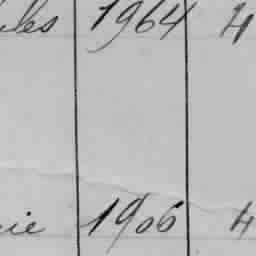 les 1964 4
ie 1906 4